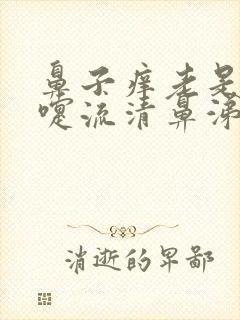 鼻子痒老是
嚏流清鼻涕
消逝的早鄙